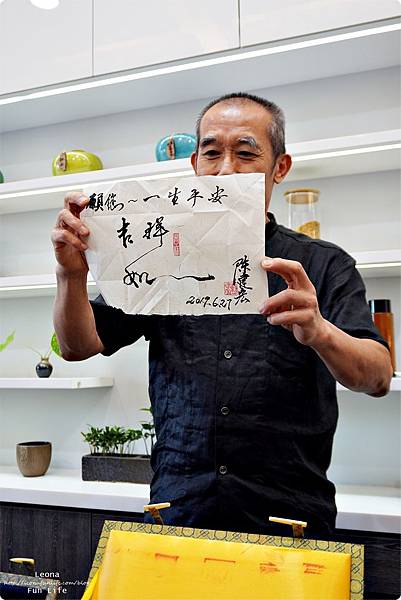 願您~一生平安
吉祥
如一
陳建宏
2019.6.27
Leona
Fun Life